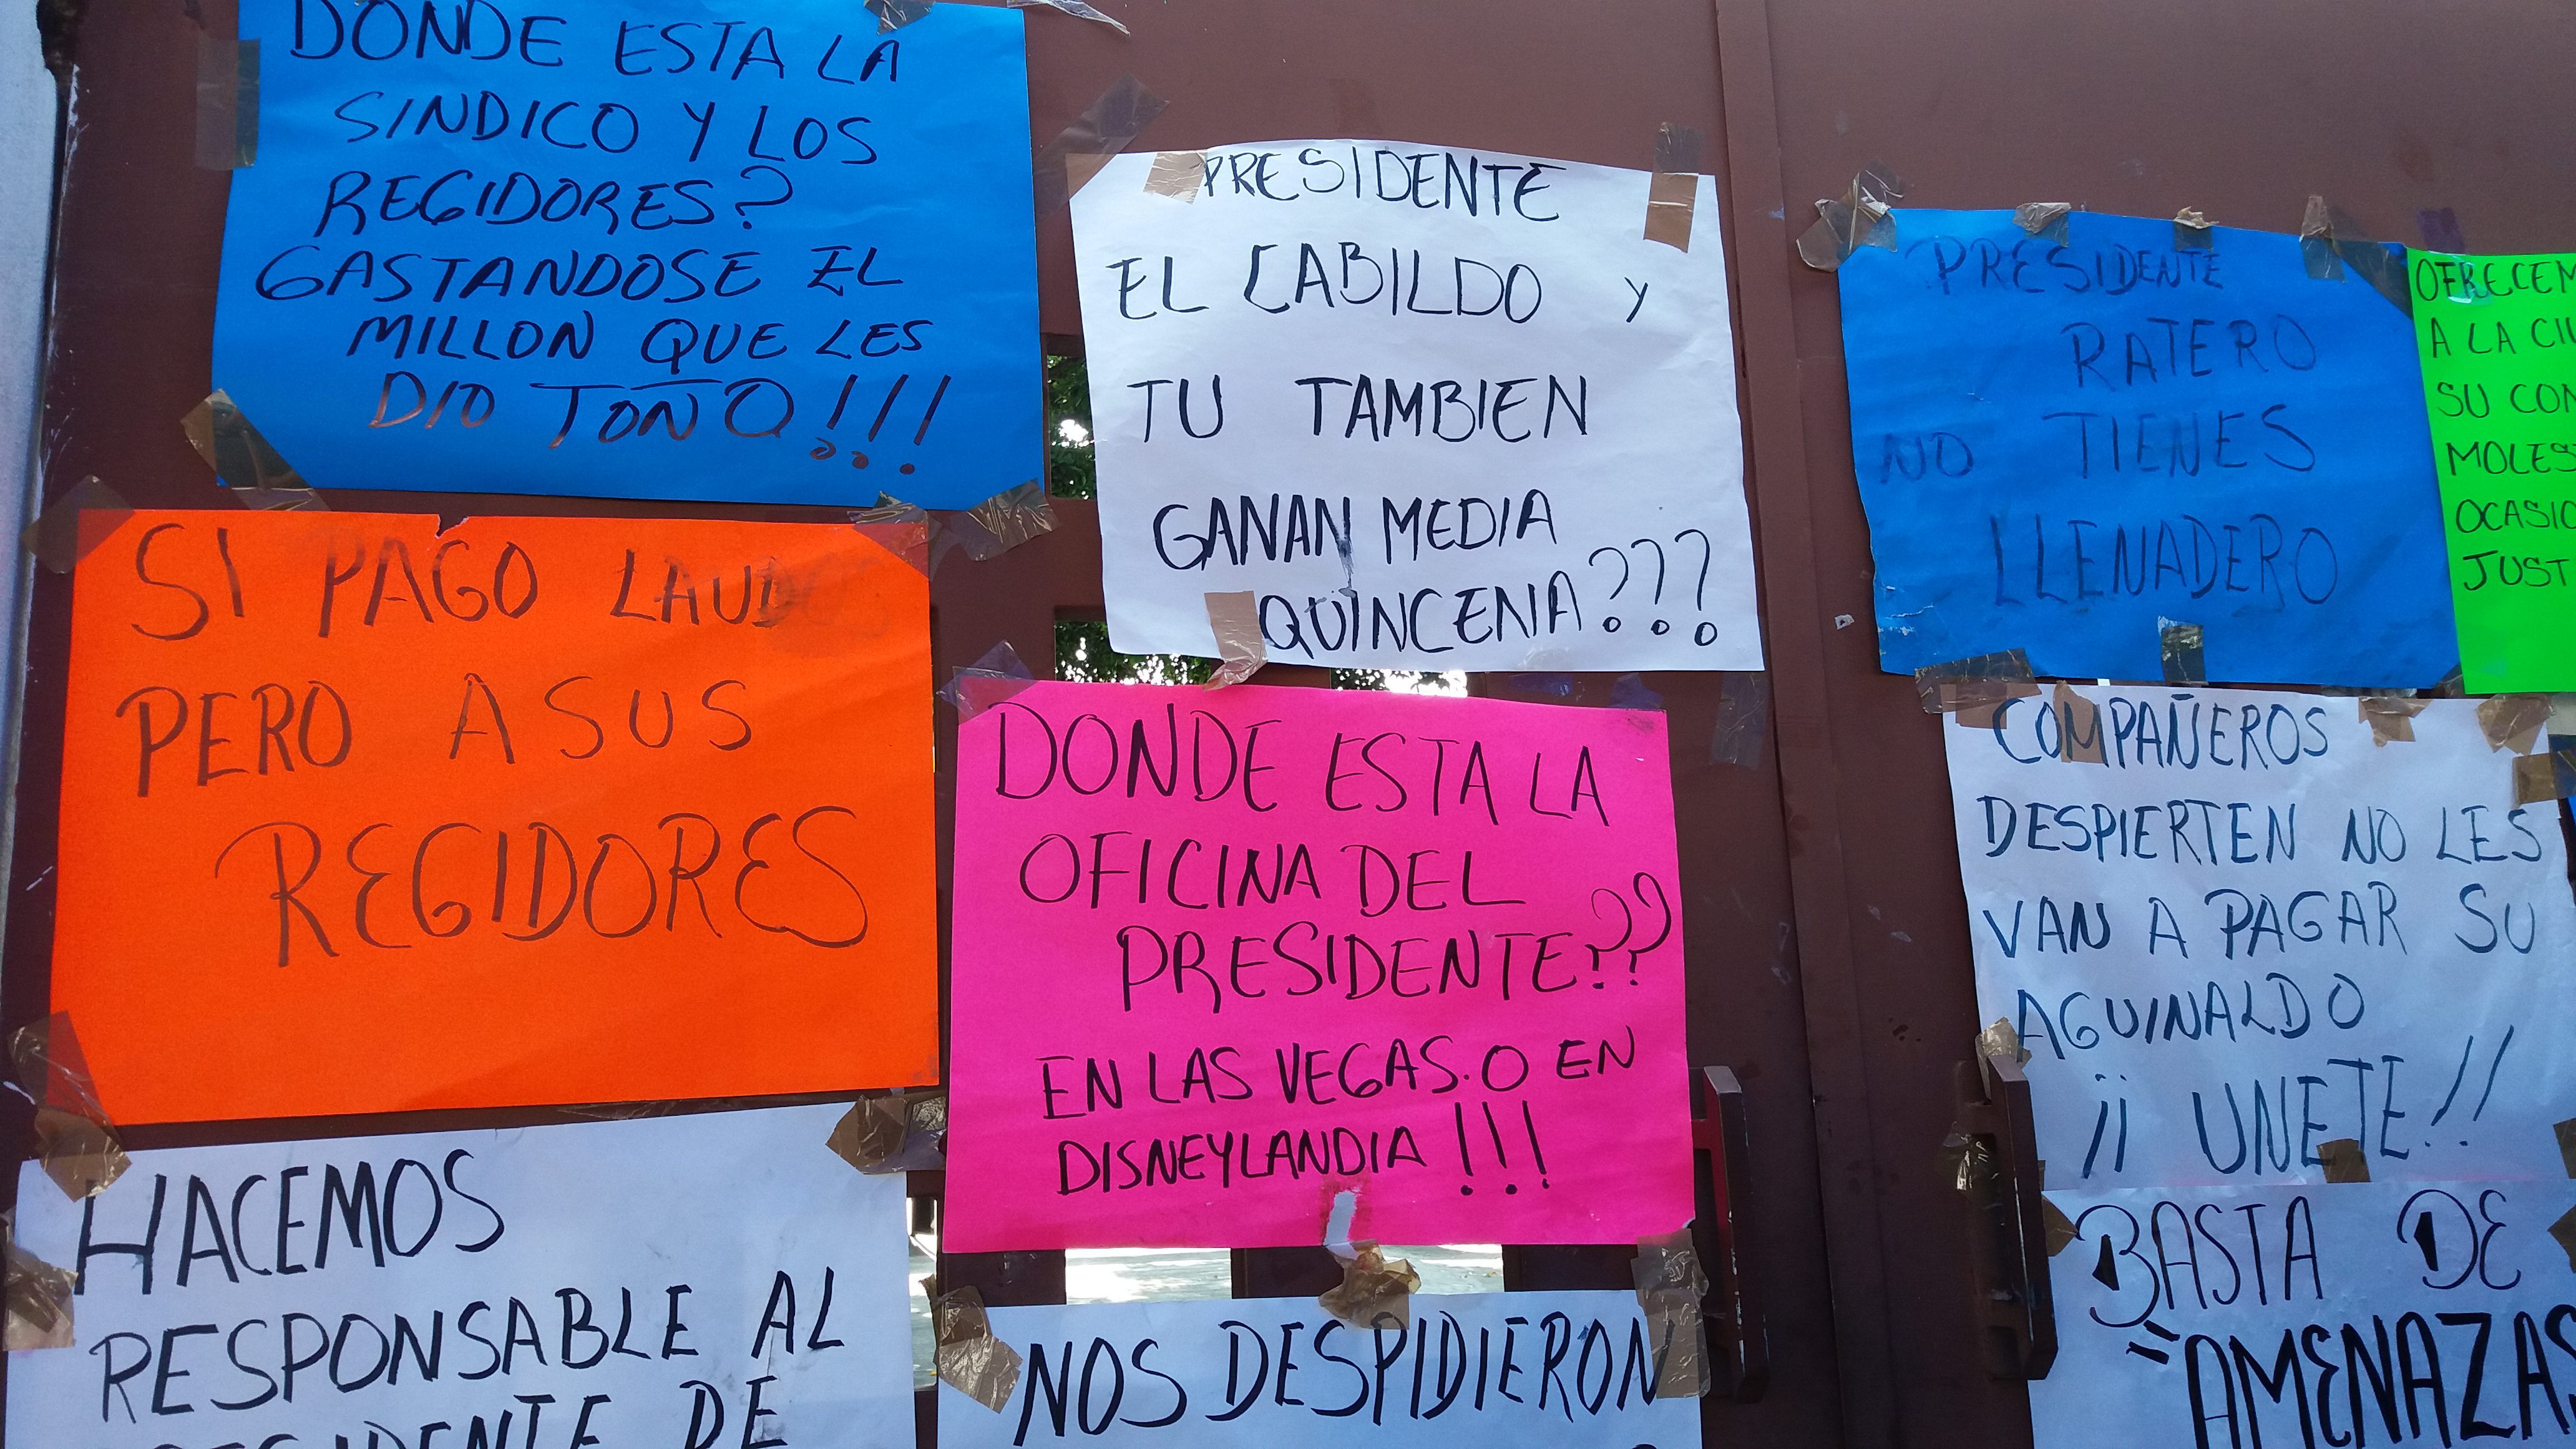 DONDE ESTA LA
SINDICO Y LOS
REGIDORES?
GASTANDOSE EL
MILLON QUE LES
DIO TOÑO!!!
PRESIDENTE
EL CABILDO Y
TU TAMBIEN
GANAN MEDIA
QUINCENA???
PRESIDENTE
RATERO
NO TIENES
LLENADERO
OFRECEM
A LA CIU
SU COM
MOLES
OCASIO
JUST
SI PAGO LAUDOS
PERO A SUS
REGIDORES
DONDE ESTA LA
OFICINA DEL
PRESIDENTE??
EN LAS VEGAS. O EN
DISNEYLANDIA!!!
COMPAÑEROS
DESPIERTEN NO LES
VAN A PAGAR SU
AGUINALDO
¡¡ UNETE!!
HACEMOS
RESPONSABLE AL
PRESIDENTE DE
NOS DESPIDIERON
BASTA DE
"AMENAZAS